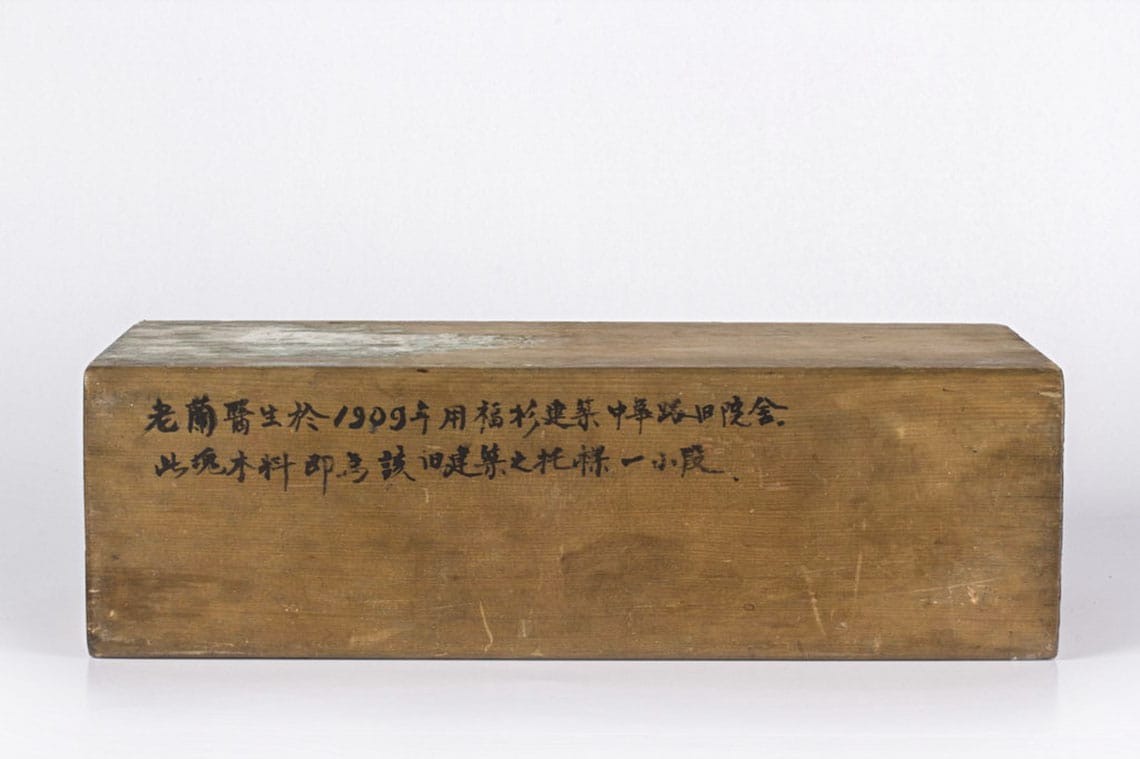 老蘭醫生於1909年用福杉建築中華路旧院舍.
此塊木料即為該旧建築之托樑一小段.